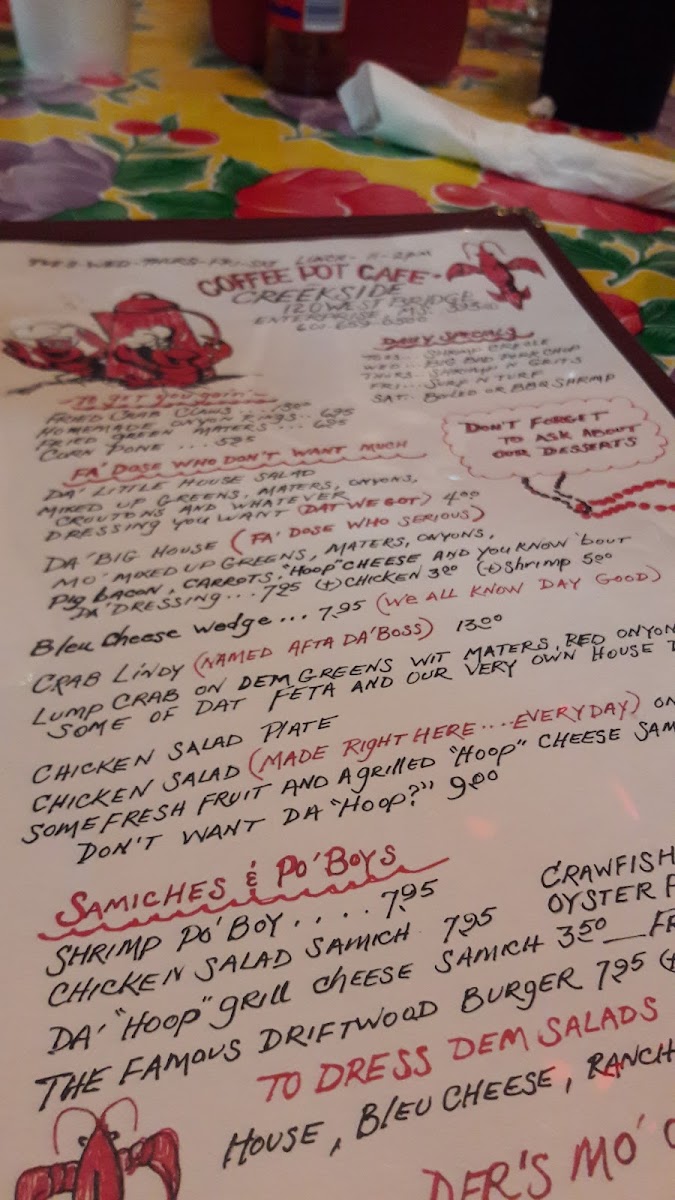 TUES-WED-THURS-FRI-SAT LUNCH - 11-2PM
COFFEE POT CAFE
CREEKSIDE
120 WEST BRIDGE
ENTERPRISE, MS.
DAILY SPECIALS
TUES... SHRIMP CREOLE
WED... BBQ PORK CHOP
THURS. SHRIMP N GRITS
FRI... SURF N TURF
SAT. BOILED OR BBQ SHRIMP
To get you goin'
FRIED CRAB CLAWS ... 1300
HOMEMADE ONYON RINGS.. 695
FRIED GREEN MATERS ... 695
CORN PONE ... 595
DON'T FORGET
TO ASK ABOUT
OUR DESSERTS
FA' DOSE WHO DON'T WANT MUCH
DA' LITTLE HOUSE SALAD
MIXED UP GREENS, MATERS, ONYONS,
CROUTONS AND WHATEVER
DRESSING YOU WANT (DAT WE GOT) 400
DA' BIG HOUSE (FA' DOSE WHO SERIOUS)
MO' MIXED UP GREENS, MATERS, ONYONS,
PIG BACON, CARROTS, "HOOP" CHEESE AND YOU KNOW 'bout
DA' DRESSING... 795 (+) CHICKEN 300 (+) Shrimp 500
Bleu Cheese Wedge ... 795 (WE ALL KNOW DAY GOOD)
CRAB LINDY (NAMED AFTA DA' BOSS) 1300
LUMP CRAB ON DEM GREENS WIT MATERS, RED ONYON
SOME OF DAT FETA AND OUR VERY OWN HOUSE
CHICKEN SALAD PLATE
CHICKEN SALAD (MADE RIGHT HERE....EVERYDAY) ON
SOME FRESH FRUIT AND A gRILLED "HOOP" CHEESE SAM
DON'T WANT DA "Hoop?" 900
SAMICHES & PO'BOYS
SHRIMP PO'BOY .... 795
CRAWFISH
CHICKEN SALAD SAMICH 795
OYSTER P
DA' "HOOP" gRILL CHEESE SAMICH 350 FR
THE FAMOUS DRIFTWOOD BURGER 795 (+
TO DRESS DEM SALADS
HOUSE, BLEU CHEESE, RANCH
DER'S MO'